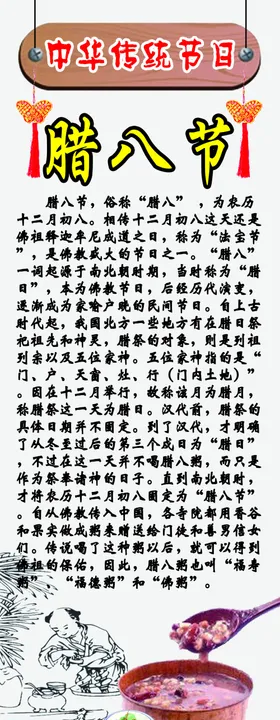 中华传统节日
腊八节
腊八节，俗称“腊八”，为农历
十二月初八。相传十二月初八这天还是
佛祖释迦牟尼成道之日，称为“法宝节
”，是佛教盛大的节日之一。“腊八”
一词起源于南北朝时期，当时称为“腊
日”，本为佛教节日，后经历代演变，
逐渐成为家喻户晓的民间节日。自上古
时代起，我国北方一些地方有在腊日祭
祀祖先和神灵，腊祭的对象，则是列祖
列宗以及五位家神。五位家神指的是“
门、户、天窗、灶、行（门内土地）”
。因在十二月举行，故称该月为腊月，
称腊祭这一天为腊日。汉代前，腊祭的
具体日期并不固定。到了汉代，才明确
了从冬至过后的第三个戌日为“腊日”
，不过在这一天并不喝腊八粥，而只是
作为祭奉诸神的日子。直到南北朝时，
才将农历十二月初八固定为“腊八节”
。自从佛教传入中国，各寺院都用香谷
和果实做成粥来赠送给门徒和善男信女
们。传说喝了这种粥以后，就可以得到
佛祖的保佑，因此，腊八粥也叫“福寿
粥”　“福德粥”和“佛粥”。